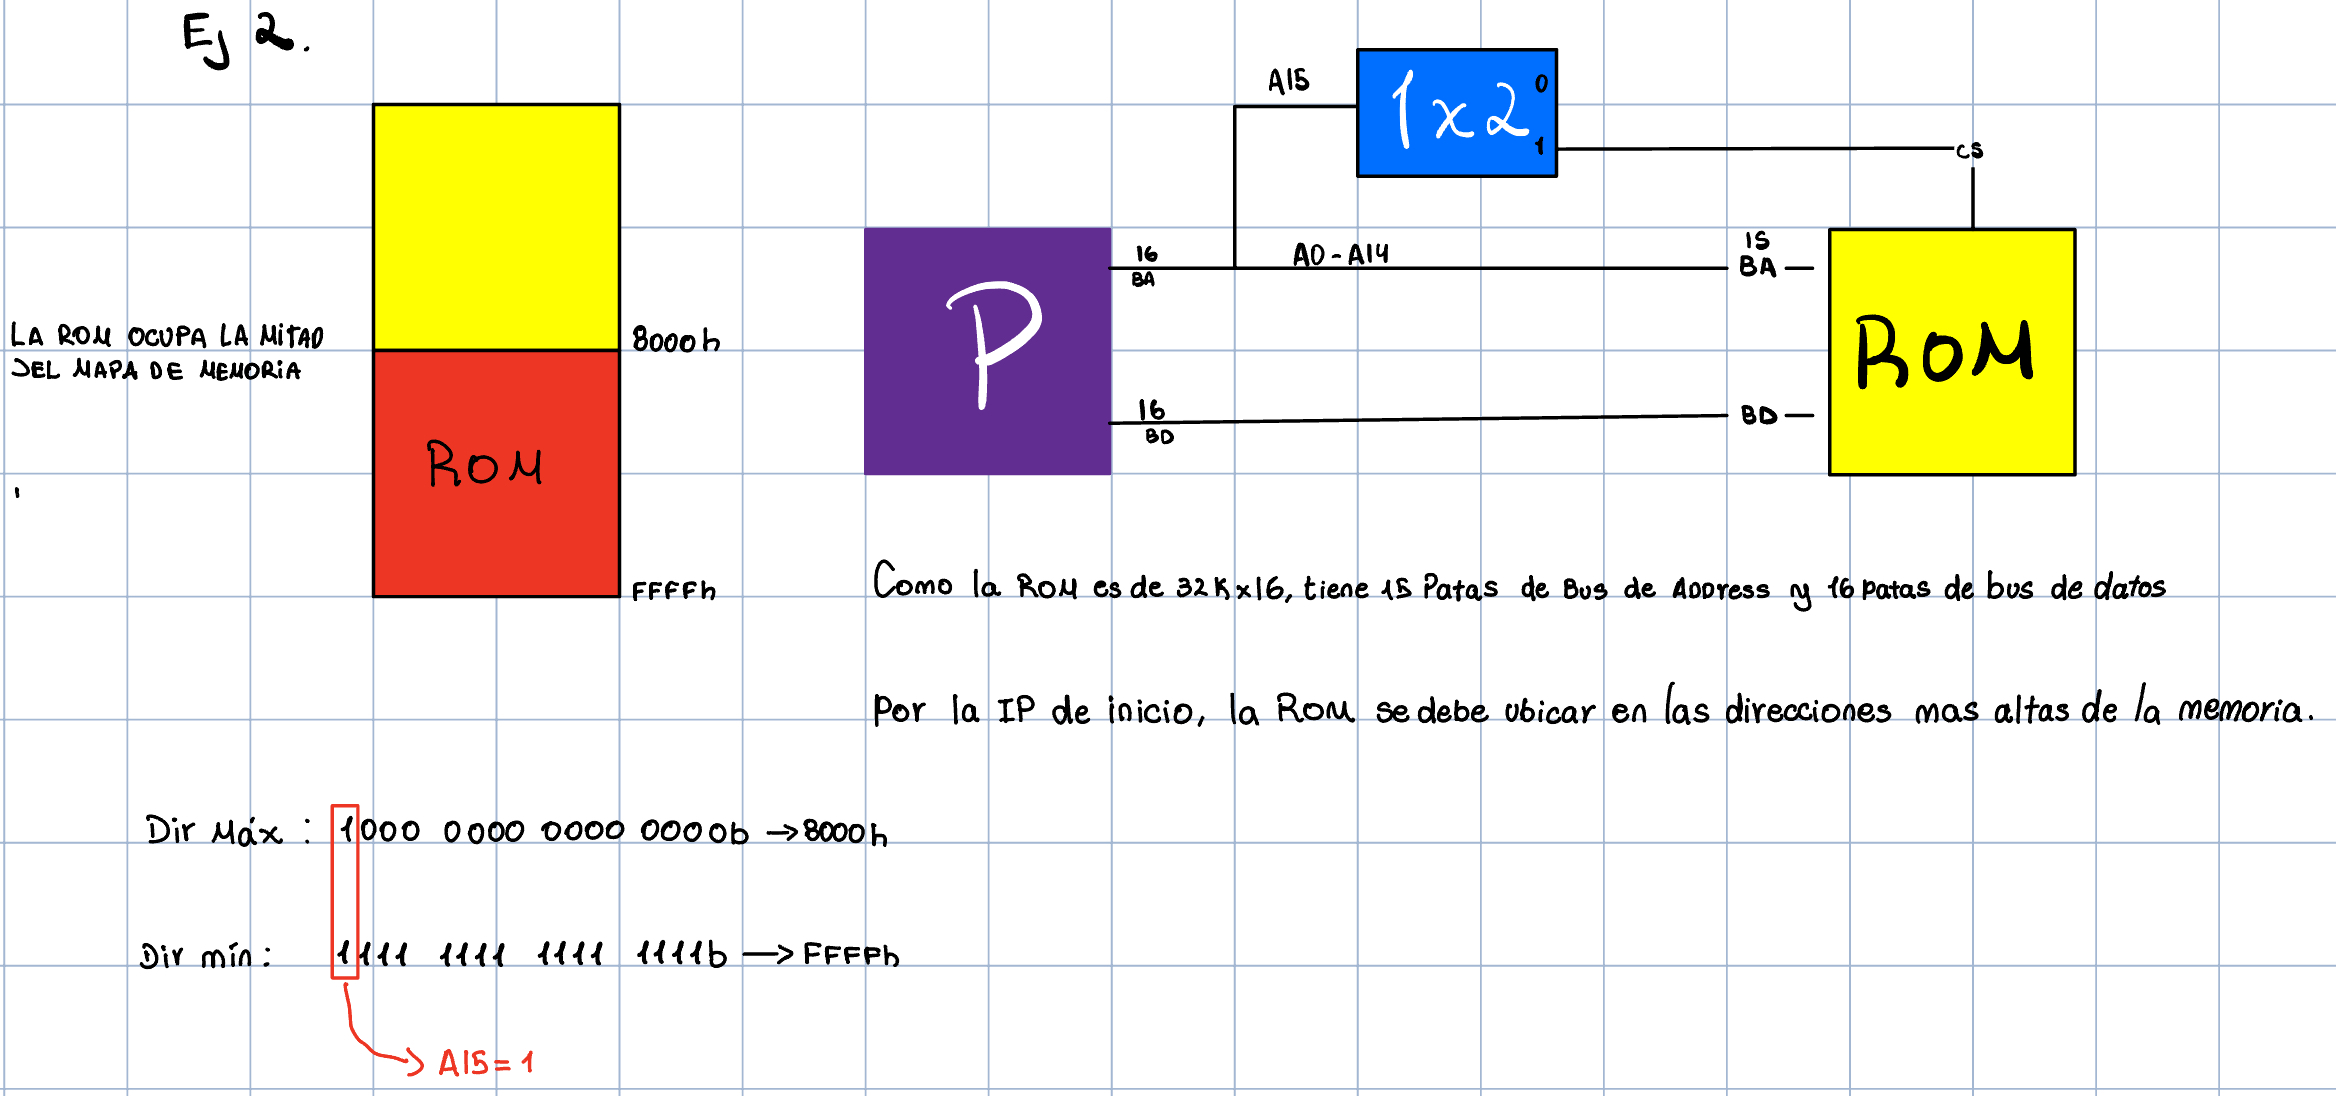 Ej 2.
LA ROM OCUPA LA MITAD
DEL MAPA DE MEMORIA
8000h
ROM
FFFFh
A15
1x2
0
1
CS
P
16
BA
A0-A14
15
BA
16
BD
BD
ROM
Como la ROM es de 32Kx16, tiene 15 Patas de Bus de Address y 16 patas de bus de datos
Por la IP de inicio, la ROM se debe ubicar en las direcciones mas altas de la memoria.
Dir Máx : 1000 0000 0000 0000b → 8000h
Dir mín: 1111 1111 1111 1111b → FFFFh
A15=1